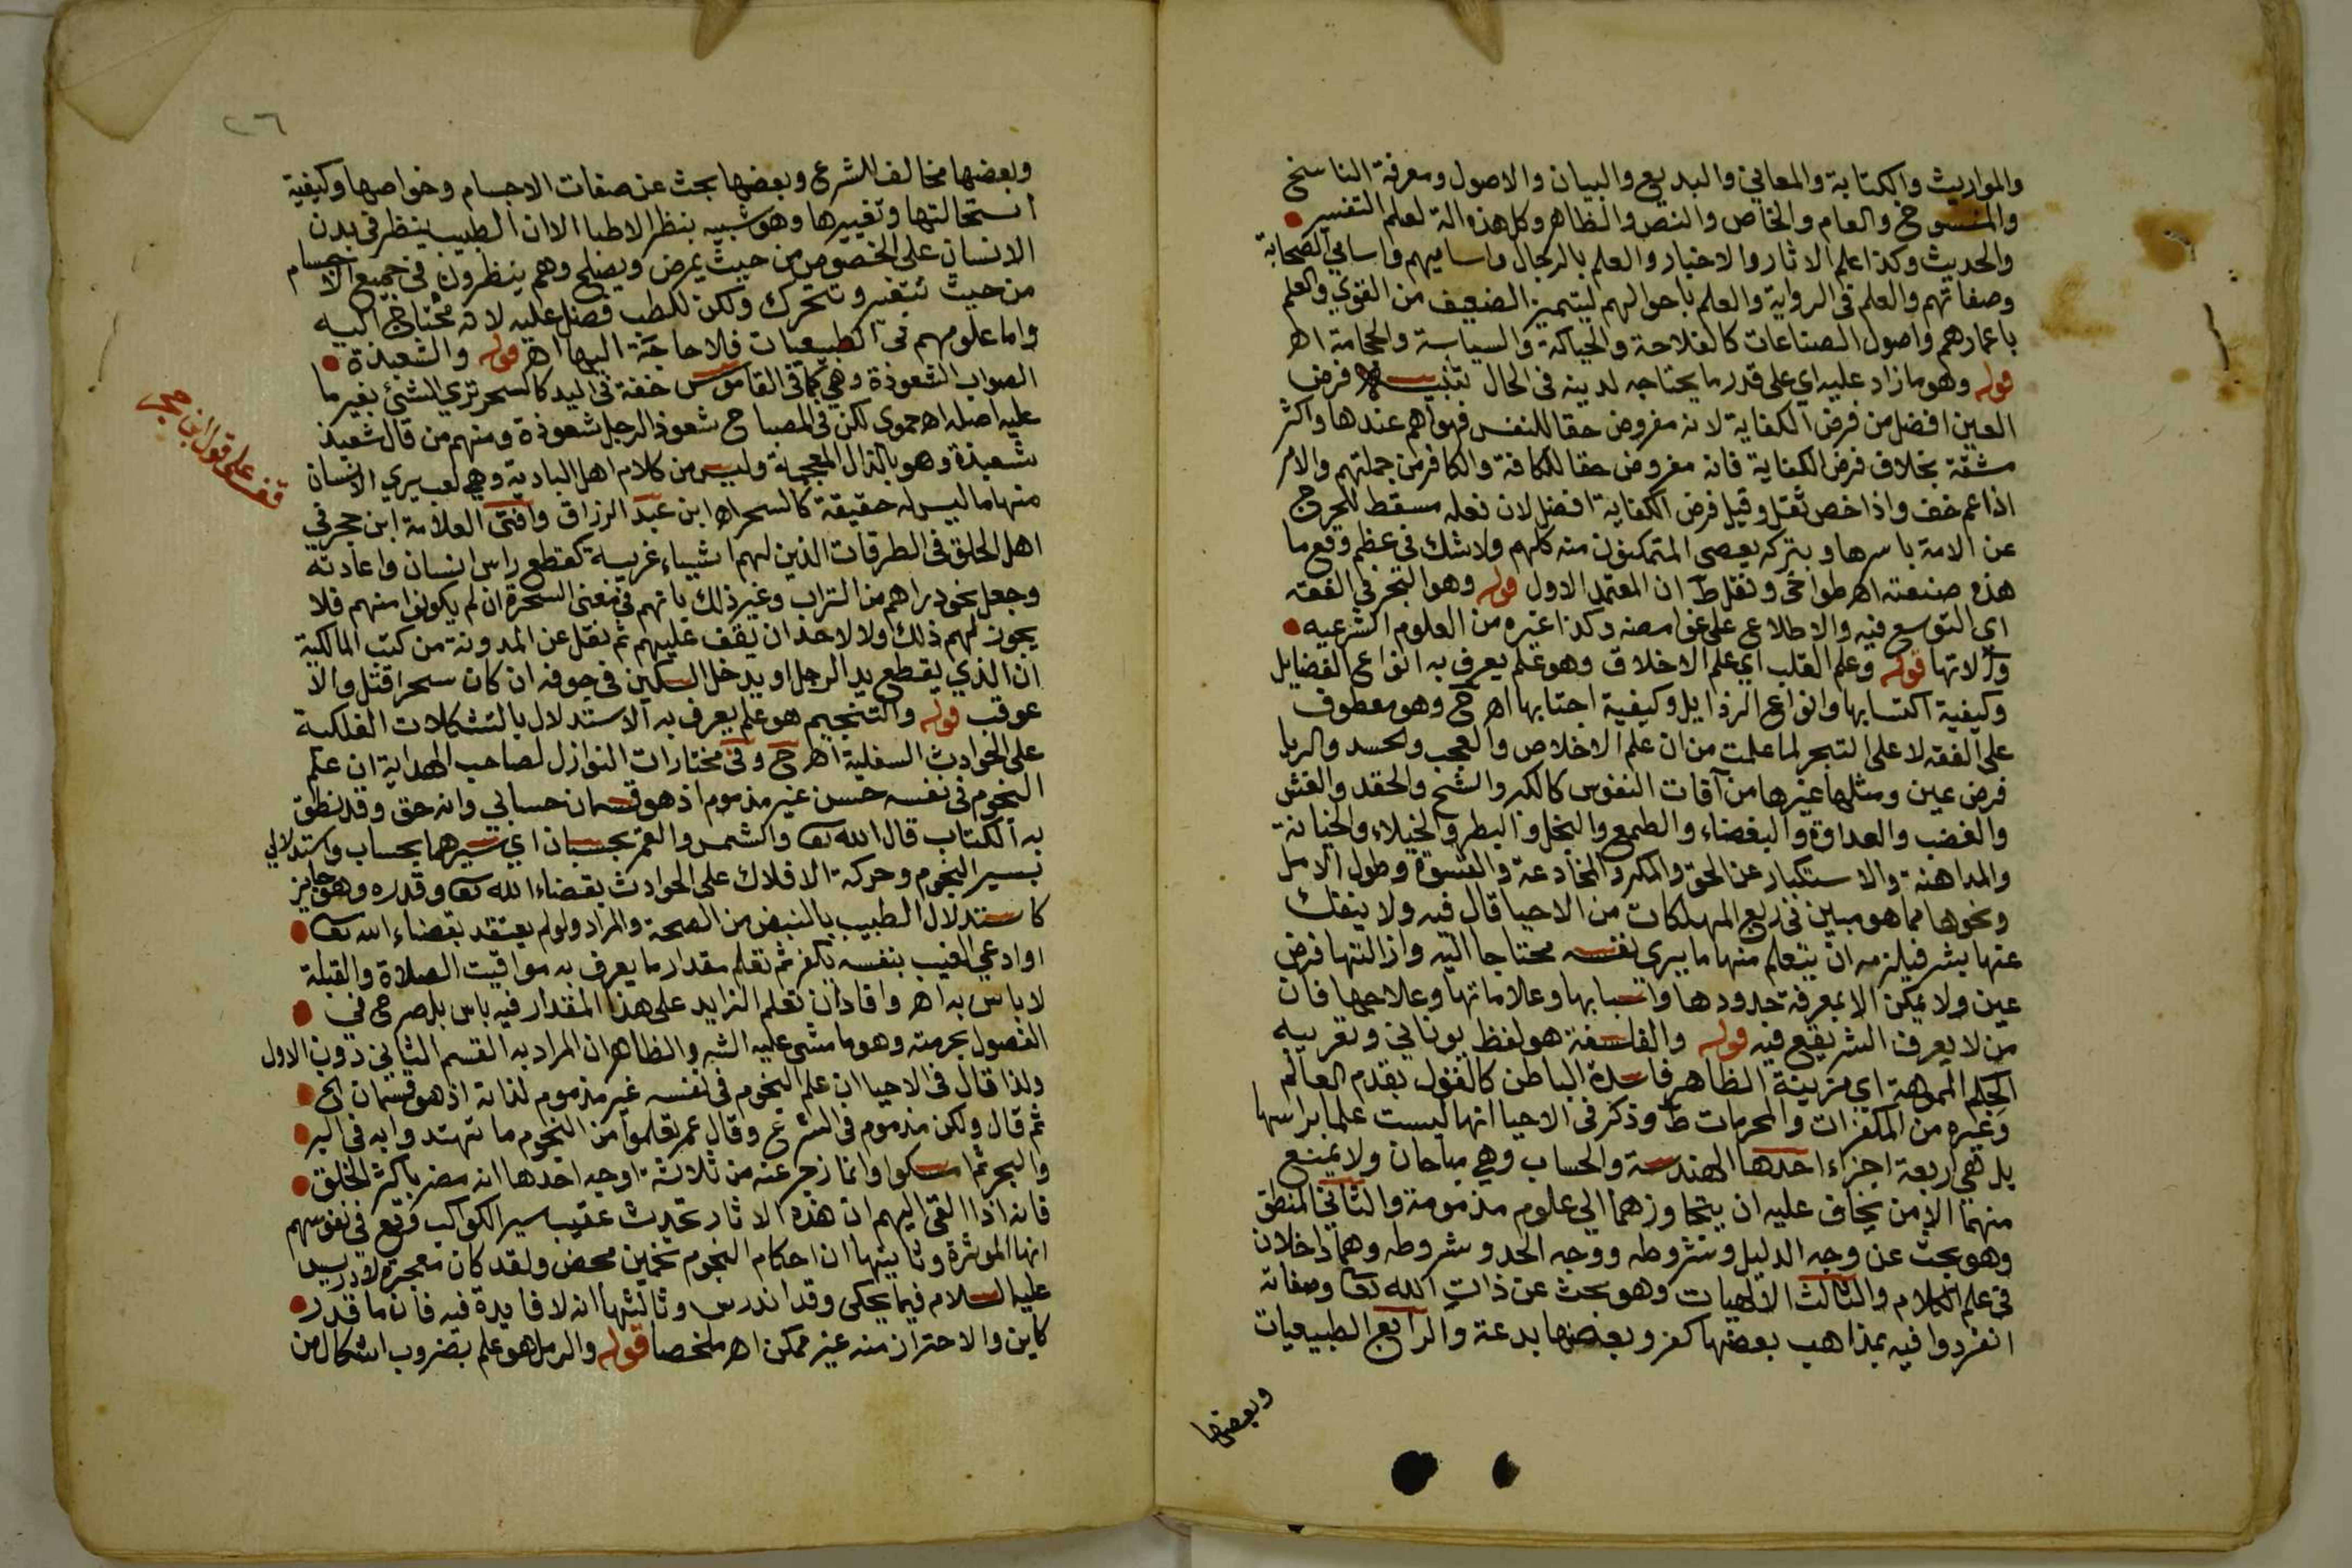 والمواريث والكتابة والمعاني والبديع والبيان والاصول ومعرفة الناسخ
والمنسوخ والعام والخاص والنص والظاهر وكل هذه الة لعلم التفسير
والحديث وكذا علم الاثار والاخبار والعلم بالرجال واساميهم واسامي الصحابة
وصفاتهم والعلم في الرواية والعلم باحوالهم ليتميز الضعيف من القوي والعلم
باعمارهم واصول الصناعات كالفلاحة والحياكة والسياسة والحجامة اهـ
قوله وهو ما زاد عليه اي على قدر ما يحتاجه لدينه في الحال تنبيه فرض
العين افضل من فرض الكفاية لانه مفروض حقا للنفس فهو اهم عندها واكثر
مشقة بخلاف فرض الكفاية فانه مفروض حقا للكافة والكافر من جملتهم والامر
اذا عم خف واذا خص ثقل وقيل فرض الكفاية افضل لان فعله مسقط للحرج
عن الامة باسرها وبتركه يعصي المتمكنون منه كلهم ولا شك في عظم وقع ما
هذه صنعته اهـ طواخي ونقل ط ان المعتمد الاول قوله وهو التبحر في الفقه
اي التوسع فيه والاطلاع على غوامضه وكذا غيره من العلوم الشرعيه
والاتها قوله وعلم القلب اي علم الاخلاق وهو علم يعرف به انواع الفضايل
وكيفية اكتسابها وانواع الرذايل وكيفية اجتنابها اهـ ح وهو معطوف
على الفقه لا على التبحر لما علمت من ان علم الاخلاص والعجب والحسد والريا
فرض عين ومثلها غيرها من آفات النفوس كالكبر والشح والحقد والغش
والغضب والعداوة والبغضاء والطمع والبخل والبطر والخيلاء والخيانة
والمداهنة والاستكبار عن الحق والمكر والمخادعة والقسوة وطول الامل
ونحوها مما هو مبين في ربع المهلكات من الاحيا قال فيه ولا ينفك
عنها بشر فيلزمه ان يتعلم منها ما يرى نفسه محتاجا اليه وازالتها فرض
عين ولا يمكن الا بمعرفة حدودها واسبابها وعلاماتها وعلاجها فان
من لا يعرف الشر يقع فيه قوله والفلسفة هو لفظ يوناني وتعريبه
الحكم المموهة اي مزينة الظاهر فاسدة الباطن كالقول بقدم العالم
وغيره من المكفرات والمحرمات ط وذكر في الاحيا انها ليست علما براسها
بل هي اربعة اجزاء احدها الهندسة والحساب وهي مباحان ولا يمنع
منهما الا من يخاف عليه ان يتجاوزهما الي علوم مذمومة والثاني المنطق
وهو بحث عن وجه الدليل وشروطه ووجه الحد وشروطه وهما داخلان
في علم الكلام والثالث الالهيات وهو بحث عن ذات الله تعا وصفاته
انفردوا فيه بمذاهب بعضها كفر وبعضها بدعة والرابع الطبيعيات
وبعضها
٢٦
وبعضها مخالف للشرع وبعضها بحث عن صفات الاجسام وخواصها وكيفية
استحالتها وتغييرها وهو شبيه بنظر الاطبا الا ان الطبيب ينظر في بدن
الانسان على الخصوص من حيث يمرض ويصلح وهم ينظرون في جميع الاجسام
من حيث تتغير وتتحرك ولكن للطب فضل عليه لانه محتاج اليه
واما علومهم في الطبيعيات فلا حاجة اليها اهـ قوله والشعبذة
الصواب الشعوذة وهي كما في القاموس خفة في اليد كالسحر تري الشئ بغير ما
عليه اصله اهـ حموي لكن في المصباح شعوذ الرجل شعوذة ومنهم من قال شعبذ
شعبذة وهو بالذال المعجمة وليس من كلام اهل البادية وهي لعب يري الانسان
منها ما ليس له حقيقة كالسحر اهـ ابن عبد الرزاق وافتى العلامة ابن حجر في
اهل الحلق في الطرقات الذين لهم اشياء غريبة كقطع راس انسان واعادته
وجعل نحو دراهم من التراب وغير ذلك بانهم في معنى السحرة ان لم يكونوا منهم فلا
يجوز لهم ذلك ولا لاحد ان يقف عليهم ثم نقل عن المدونة من كتب المالكية
ان الذي يقطع يد الرجل او يدخل السكين في جوفه ان كان سحرا قتل والا
عوقب قوله والتنجيم هو علم يعرف به الاستدلال بالتشكلات الفلكية
على الحوادث السفلية اهـ ح وفي مختارات النوازل لصاحب الهداية ان علم
النجوم في نفسه حسن غير مذموم اذ هو قسمان حسابي وانه حق وقد نطق
به الكتاب قال الله تعا والشمس والقمر بحسبان اي سيرهما بحساب واستدلالي
بسير النجوم وحركة الافلاك على الحوادث بقضاء الله تعا وقدره وهو جايز
كاستدلال الطبيب بالنبض من الصحة والمراد ولو لم يعتقد بقضاء الله تعا
او ادعى الغيب بنفسه يكفر ثم تعلم مقدار ما يعرف به مواقيت الصلاة والقبلة
لا باس به اهـ وافاد ان تعلم الزايد على هذا المقدار فيه باس بل صرح في
الفصول بحرمته وهو ما مشى عليه الشه والظاهر ان المراد به القسم الثاني دون الاول
ولذا قال في الاحيا ان علم النجوم في نفسه غير مذموم لذاته اذ هو قسمان الخ
ثم قال ولكن مذموم في الشرع وقال عمر تعلموا من النجوم ما تهتدوا به في البر
والبحر ثم امسكوا وانما زجر عنه من ثلاثة اوجه احدها انه مضر باكثر الخلق
فانه اذا القى اليهم ان هذه الاثار تحدث عقيب سير الكواكب وقع في نفوسهم
انها الموثرة وثانيها ان احكام النجوم تخمين محض ولقد كان معجزة لادريس
عليه السلام فيما يحكى وقد اندرس وثالثها انه لا فايدة فيه فان ما قدر
كاين والاحتراز منه غير ممكن اهـ ملخصا قوله والرمل هو علم بضروب اشكال من
قف على قول ابن حجر